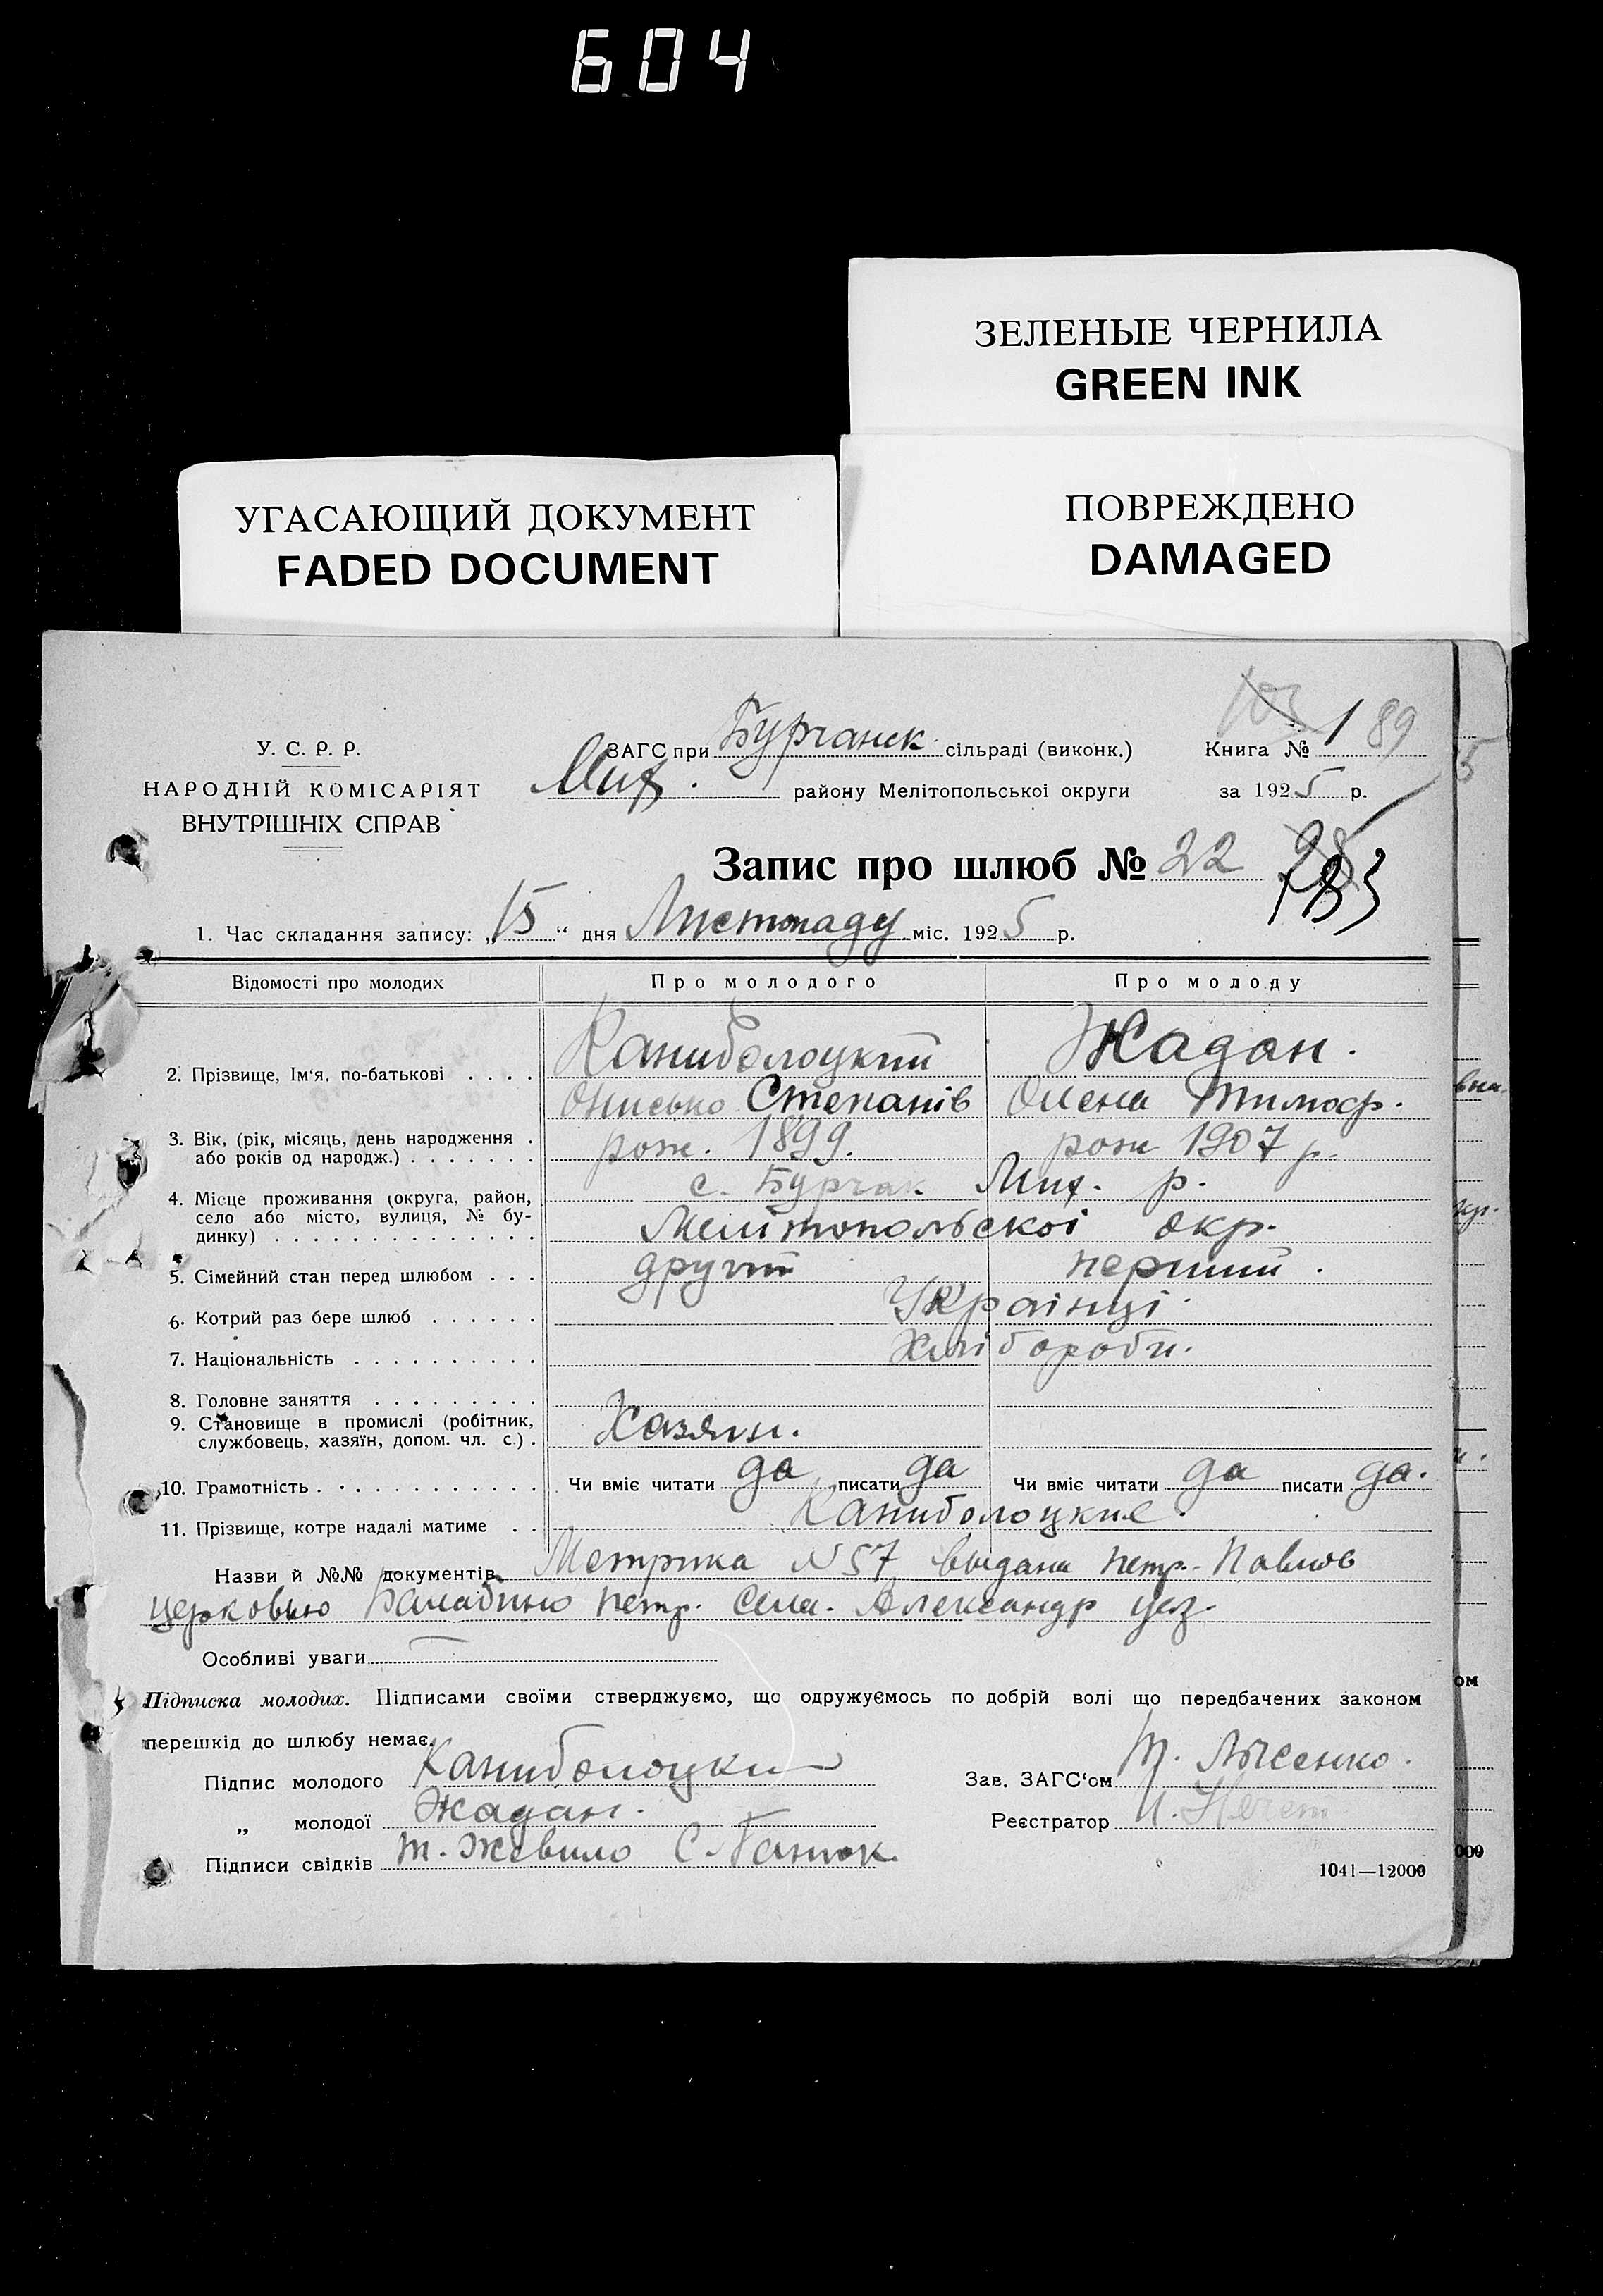 604
ЗЕЛЕНЫЕ ЧЕРНИЛА
GREEN INK
УГАСАЮЩИЙ ДОКУМЕНТ
FADED DOCUMENT
ПОВРЕЖДЕНО
DAMAGED
У. С. Р. Р.
НАРОДНІЙ КОМІСАРІЯТ
ВНУТРІШНІХ СПРАВ
103
ЗАГС при Бурчанск. сільраді (виконк.) Книга № 1 89
Мих. району Мелітопольської округи за 1925 р.
Запис про шлюб № 22 28
183
1. Час складання запису: „15“ дня Листопаду міс. 1925 р.
Відомості про молодих Про молодого Про молоду
Каниболоцкий Жадан.
2. Прізвище, Ім'я, по-батькові
Онисько Степанів Олена Тимоф.
3. Вік, (рік, місяць, день народження
або років од народж.) рож. 1899. рож 1907 р.
4. Місце проживання (округа, район, с. Бурчак Мих. р.
село або місто, вулиця, № бу-
динку) Мелітопольскоі окр.
5. Сімейний стан перед шлюбом другий перший.
6. Котрий раз бере шлюб Українці
7. Національність Хлібороби.
8. Головне заняття
9. Становище в промислі (робітник,
службовець, хазяїн, допом. чл. с.) Хазяин.
10. Грамотність Чи вміє читати да писати да Чи вміє читати да писати да.
11. Прізвище, котре надалі матиме Каниболоцкие.
Назви й №№ документів Метрика N 57 выдана петр.-Павлов
церковью Балабино петр. села. Александр уез.
Особливі уваги
Підписка молодих. Підписами своїми стверджуємо, що одружуємось по добрій волі що передбачених законом
перешкід до шлюбу немає.
Підпис молодого Каниболоцки Зав. ЗАГС'ом Т. Лысенко.
„ молодої Жадан. Реєстратор И.
Підписи свідків Т. Жевило С.
1041—12000